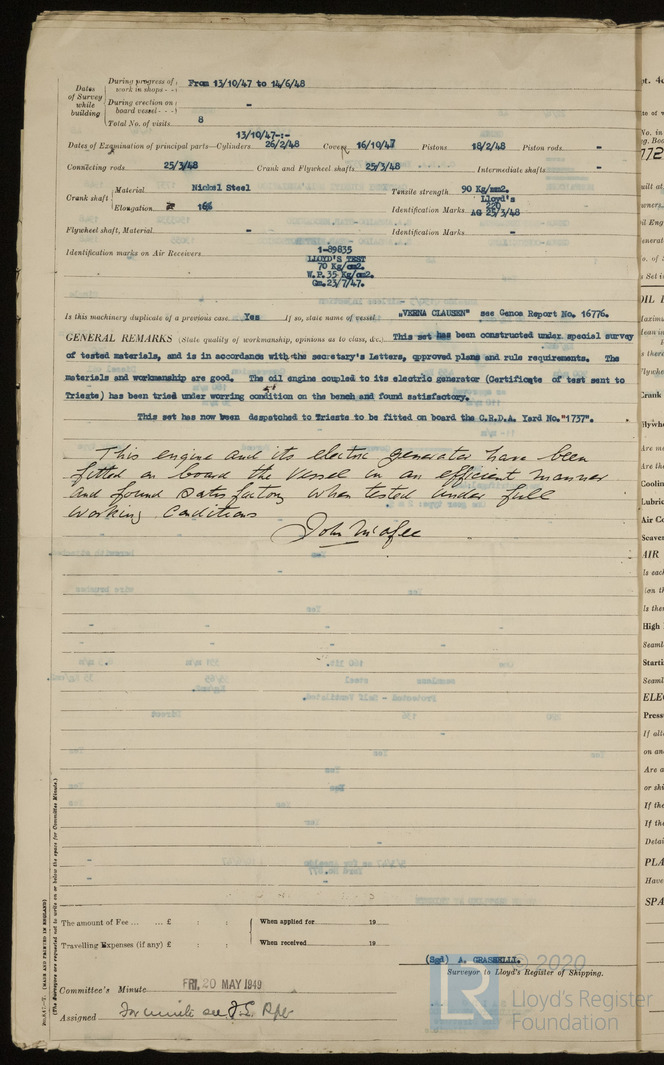 During progress of work in shops - - From 13/10/47 to 14/6/48
Dates of Survey while building
During erection on board vessel - - - -
Total No. of visits 8
13/10/47-:-
Dates of Examination of principal parts—Cylinders 26/2/48 Covers 16/10/47 Pistons 18/2/48 Piston rods -
Connecting rods 25/3/48 Crank and Flywheel shafts 25/3/48 Intermediate shafts -
Crank shaft Material Nickel Steel Tensile strength 90 Kg/mm2.
Elongation Identification Marks Lloyd's 220 AG 25/3/48
Flywheel shaft, Material - Identification Marks -
Identification marks on Air Receivers 1-89835
LLOYD'S TEST
70 Kg/cm2.
W.P. 35 Kg/cm2.
Gm. 23/7/47.
Is this machinery duplicate of a previous case Yes If so, state name of vessel „VERNA CLAUSEN" see Genoa Report No. 16776.
GENERAL REMARKS (State quality of workmanship, opinions as to class, &c.) This set has been constructed under special survey
of tested materials, and is in accordance with the secretary's Letters, approved plans and rule requirements. The
materials and workmanship are good. The oil engine coupled to its electric generator (Certificate of test sent to
Trieste) has been tried under worring condition on the bench and found satisfactory.
This set has now been despatched to Trieste to be fitted on board the C.R.D.A. Yard No."1737".
This engine and its electric generator have been
fitted on board the vessel in an efficient manner
and found satisfactory when tested under full
working conditions
John McAfee
The amount of Fee ... ... £ : : When applied for 19
Travelling Expenses (if any) £ : : When received 19
(Sgd) A. GRASSELLI.
Surveyor to Lloyd's Register of Shipping.
Committee's Minute FRI. 20 MAY 1949
Assigned For minute see F.E. Rpt
(MADE AND PRINTED IN ENGLAND)
(The Surveyors are requested not to write on or below the space for Committee Minute.)
© 2020
LR Lloyd's Register
Foundation